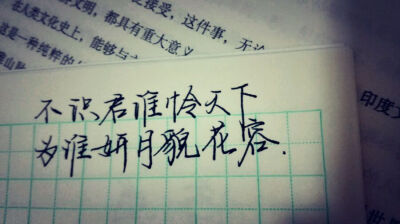 接受，这件事，无论
文明，都具有重大意义
在人类文化史上，能够与
这是一种纯粹的人
不识君谁怜天下
为谁妍月貌花容.
印度文